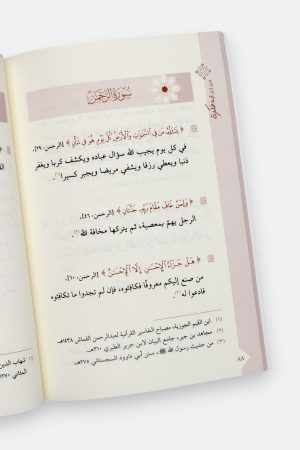 سُورَةُ الرَّحْمَٰن
﴿ يَسْـَٔلُهُۥ مَن فِي السَّمَٰوَٰتِ وَالْأَرْضِ كُلَّ يَوْمٍ هُوَ فِي شَأْنٍ ﴾ [الرحمن: ٢٩].
في كل يوم يجيب الله سؤال عباده ويكشف كربا ويغفر
ذنبا ويعطي رزقا ويشفي مريضا ويجبر كسيرا(١).
﴿ وَلِمَنْ خَافَ مَقَامَ رَبِّهِۦ جَنَّتَانِ ﴾ [الرحمن: ٤٦].
الرجل يهمّ بمعصية، ثم يتركها مخافة لله(٢).
﴿ هَلْ جَزَآءُ الْإِحْسَٰنِ إِلَّا الْإِحْسَٰنُ ﴾ [الرحمن: ٦٠].
من صنع إليكم معروفًا فكافئوه، فإن لم تجدوا ما تكافئوه
فادعوا له(٣).
(١) ابن القيم الجوزية، مصباح التفاسير القرآنية لعبدالرحمن القماش ١٤٣٨هـ.
(٢) مجاهد بن جبر، جامع البيان لابن جرير الطبري ٣١٠هـ.
(٣) من حديث رسول الله ﷺ، سنن أبي داوود السجستاني ٢٧٥هـ.
٨٨